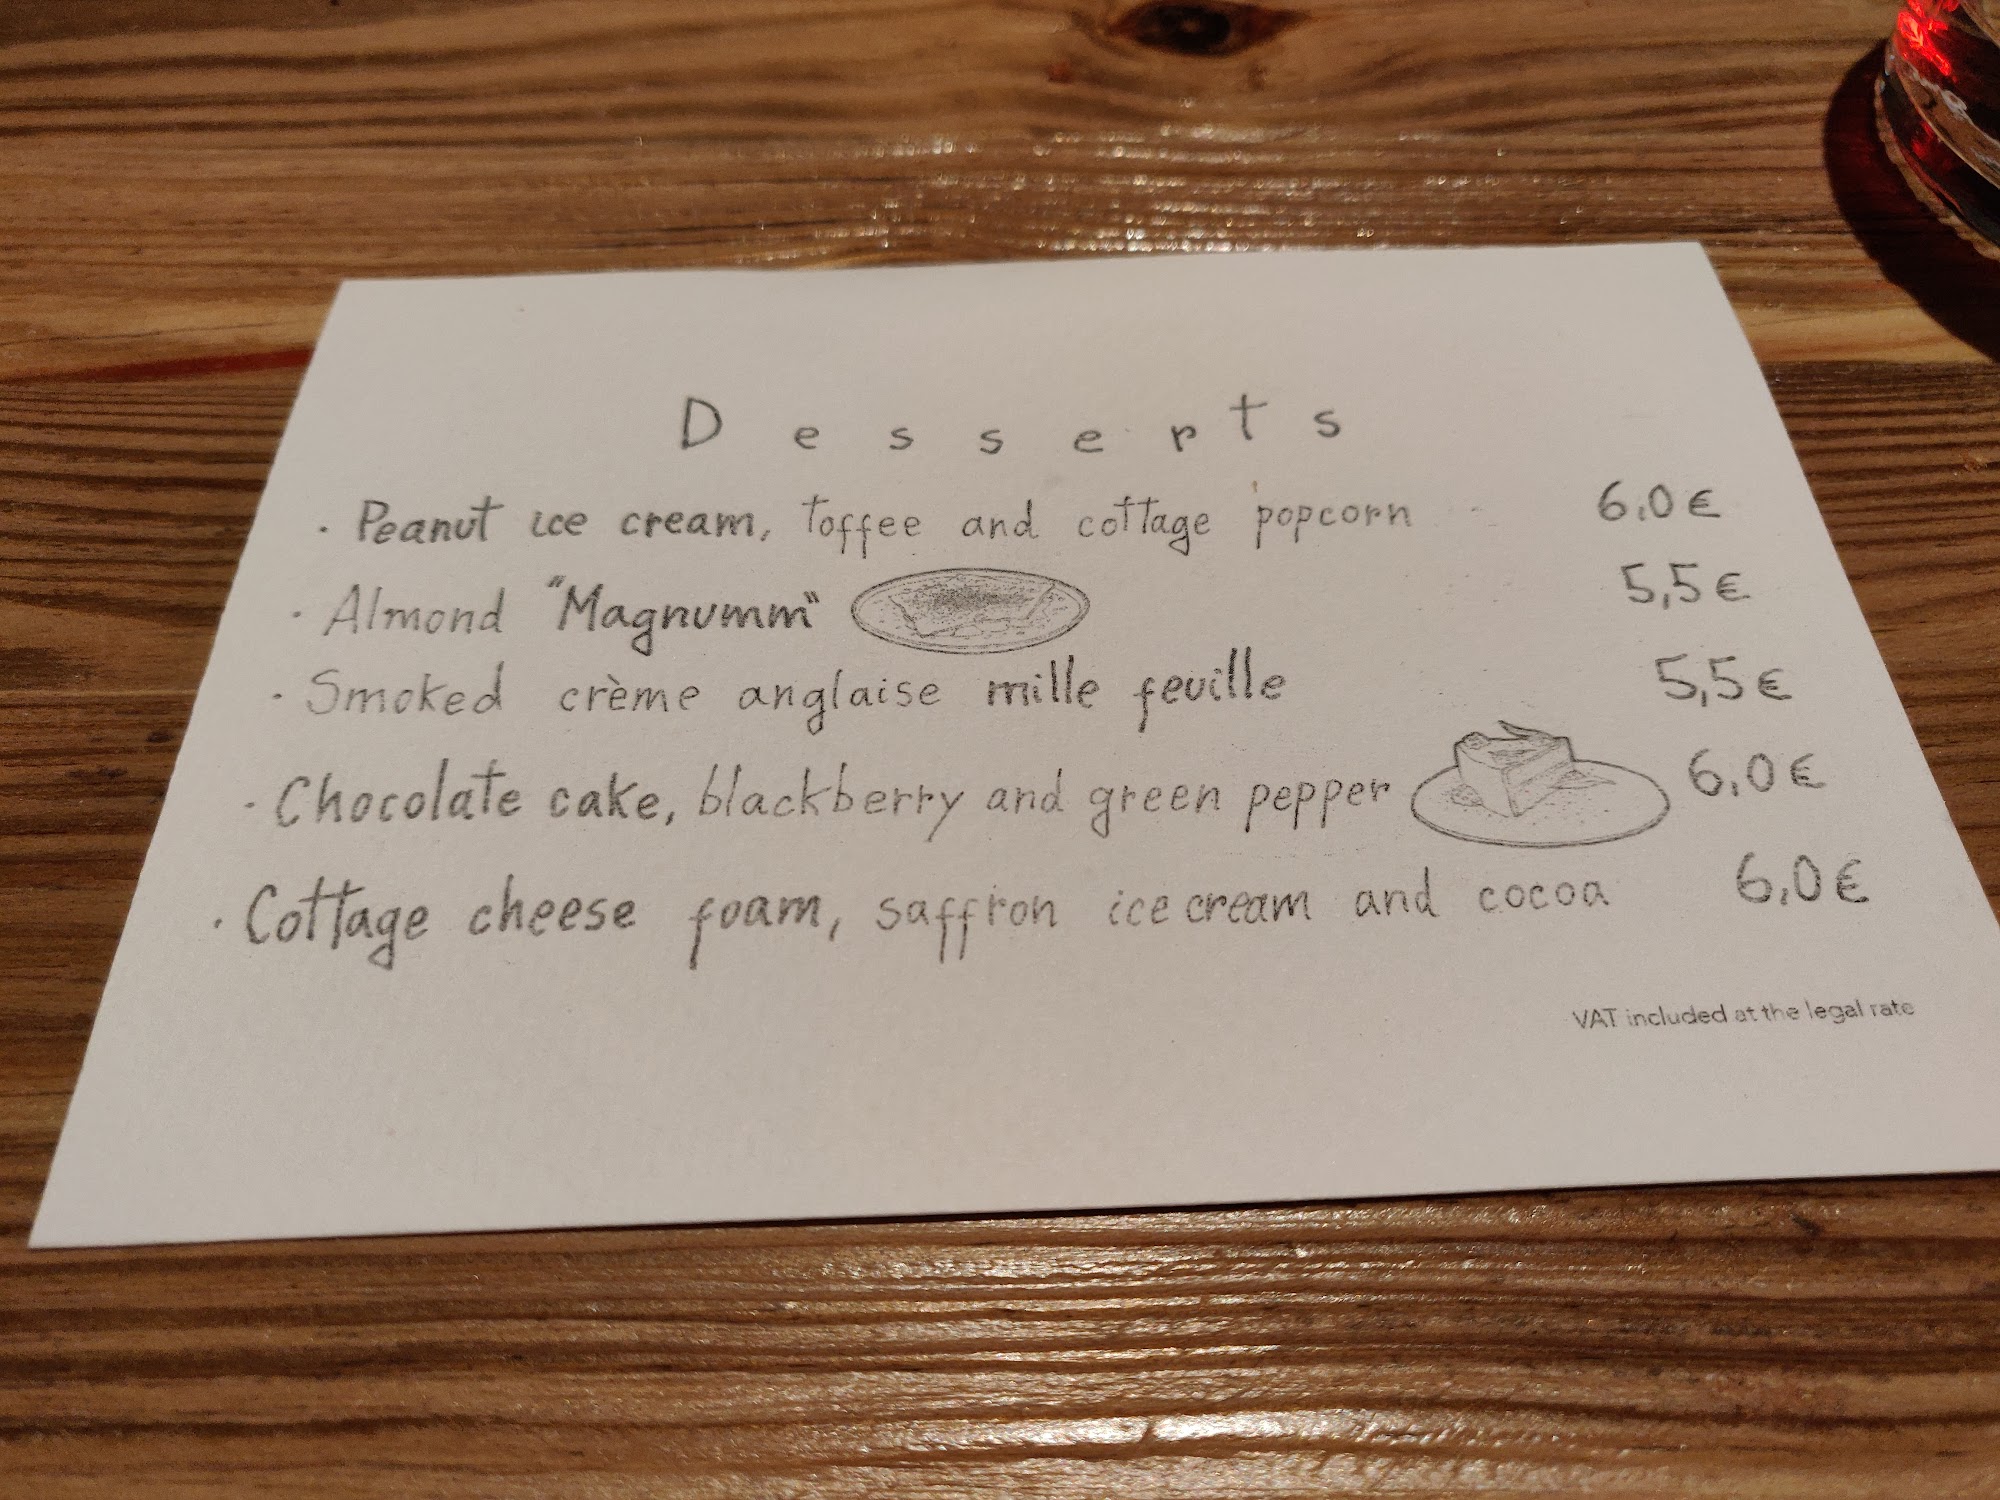 Desserts
· Peanut ice cream, toffee and cottage popcorn 6,0€
· Almond "Magnumm" 5,5€
· Smoked crème anglaise mille feuille 5,5€
· Chocolate cake, blackberry and green pepper 6,0€
· Cottage cheese foam, saffron ice cream and cocoa 6,0€
VAT included at the legal rate